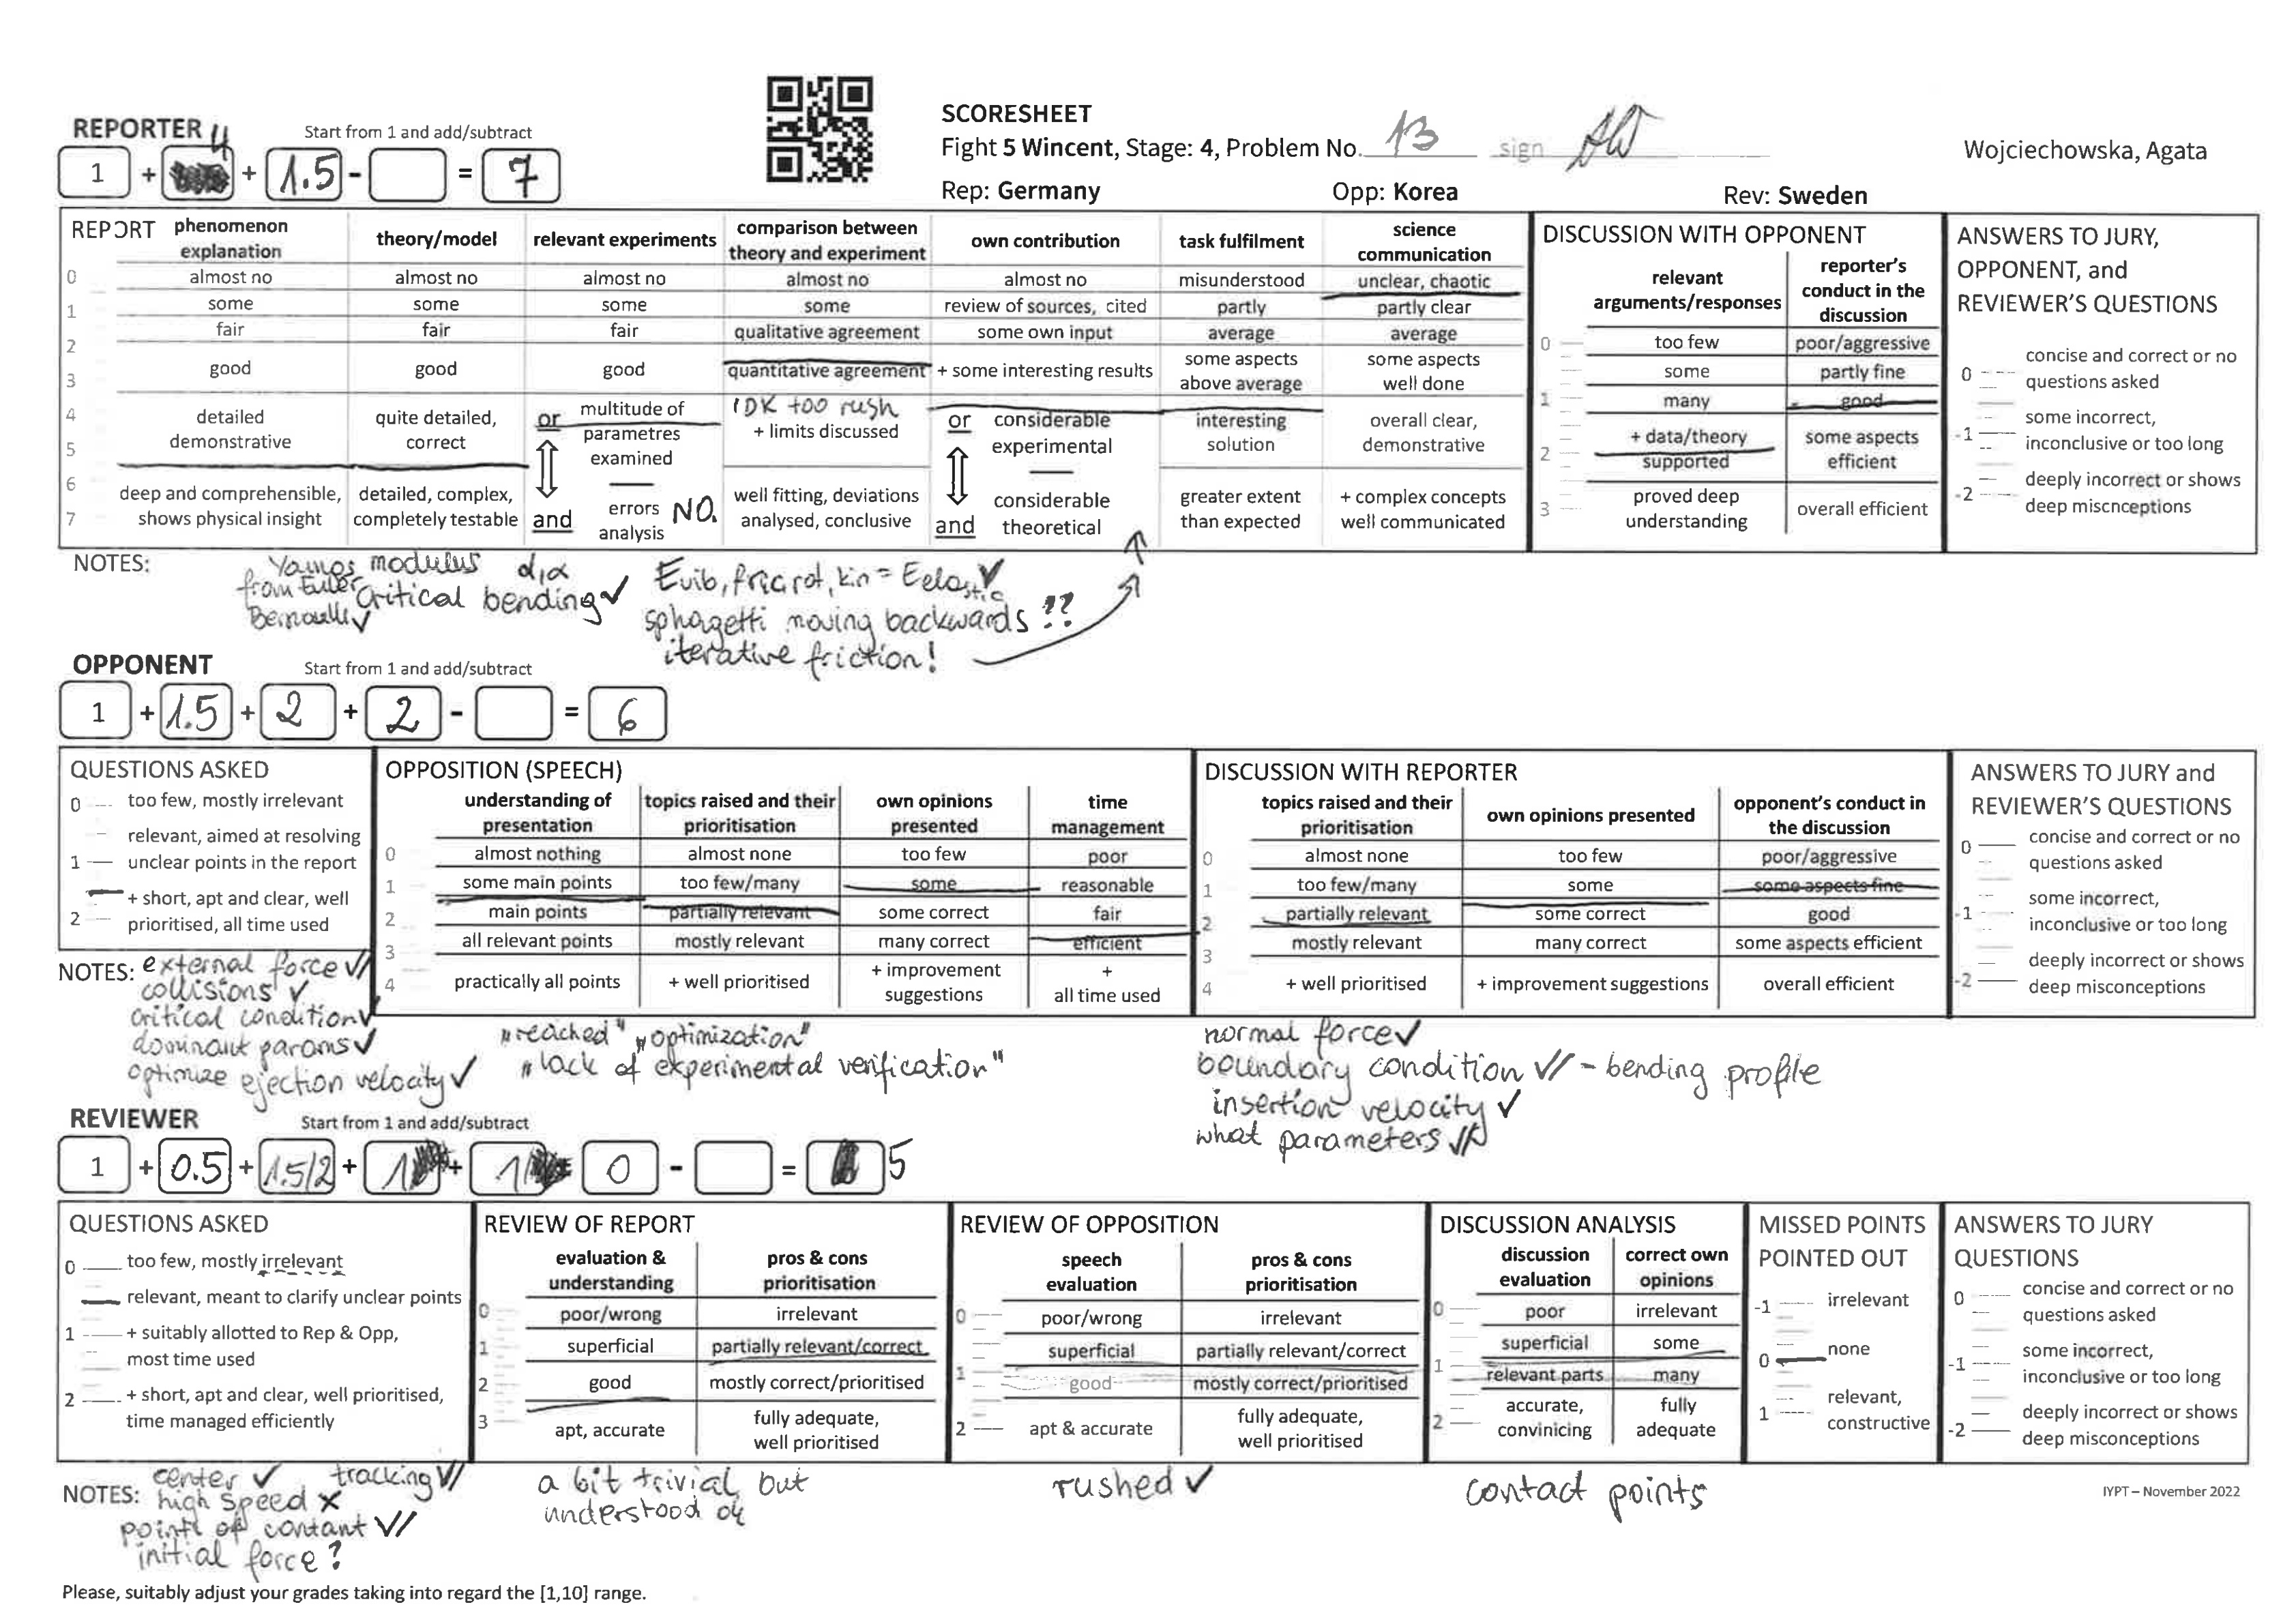 SCORESHEET
REPORTER Start from 1 and add/subtract
Fight 5 Wincent, Stage: 4, Problem No. 13 sign AW
Wojciechowska, Agata
1 + 4 + 1.5 - = 7
Rep: Germany Opp: Korea Rev: Sweden
REPORT
phenomenon explanation | theory/model | relevant experiments | comparison between theory and experiment | own contribution | task fulfilment | science communication
0 almost no | almost no | almost no | almost no | almost no | misunderstood | unclear, chaotic
1 some | some | some | some | review of sources, cited | partly | partly clear
2 fair | fair | fair | qualitative agreement | some own input | average | average
3 good | good | good | quantitative agreement | + some interesting results | some aspects above average | some aspects well done
4 5 detailed demonstrative | quite detailed, correct | or multitude of parametres examined | IDK too rush + limits discussed | or considerable experimental | interesting solution | overall clear, demonstrative
6 7 deep and comprehensible, shows physical insight | detailed, complex, completely testable | and errors analysis NO. | well fitting, deviations analysed, conclusive | and considerable theoretical | greater extent than expected | + complex concepts well communicated
DISCUSSION WITH OPPONENT
relevant arguments/responses | reporter's conduct in the discussion
0 too few | poor/aggressive
some | partly fine
1 many | good
2 + data/theory supported | some aspects efficient
3 proved deep understanding | overall efficient
ANSWERS TO JURY, OPPONENT, and REVIEWER'S QUESTIONS
0 concise and correct or no questions asked
-1 some incorrect, inconclusive or too long
-2 deeply incorrect or shows deep miscnceptions
NOTES:
Youngs modulus d,α
from Euler Critical bending ✓
Bernoulli ✓
Evib, fric, rot, kin = Eelastic ✓
sphagetti moving backwards ??
iterative friction!
OPPONENT Start from 1 and add/subtract
1 + 1.5 + 2 + 2 - = 6
QUESTIONS ASKED
0 too few, mostly irrelevant
1 relevant, aimed at resolving unclear points in the report
2 + short, apt and clear, well prioritised, all time used
OPPOSITION (SPEECH)
understanding of presentation | topics raised and their prioritisation | own opinions presented | time management
0 almost nothing | almost none | too few | poor
1 some main points | too few/many | some | reasonable
2 main points | partially relevant | some correct | fair
3 all relevant points | mostly relevant | many correct | efficient
4 practically all points | + well prioritised | + improvement suggestions | + all time used
DISCUSSION WITH REPORTER
topics raised and their prioritisation | own opinions presented | opponent's conduct in the discussion
0 almost none | too few | poor/aggressive
1 too few/many | some | some aspects fine
2 partially relevant | some correct | good
3 mostly relevant | many correct | some aspects efficient
4 + well prioritised | + improvement suggestions | overall efficient
ANSWERS TO JURY and REVIEWER'S QUESTIONS
0 concise and correct or no questions asked
-1 some incorrect, inconclusive or too long
-2 deeply incorrect or shows deep misconceptions
NOTES: external force ✓✓
collisions ✓
critical condition ✓
dominant params ✓
optimize ejection velocity ✓
"reached" "optimization"
"lack of experimental verification"
normal force ✓
boundary condition ✓✓ - bending profile
insertion velocity ✓
what parameters ✓✓
REVIEWER Start from 1 and add/subtract
1 + 0.5 + 1.5/2 + 1 + 1 0 - = 5
QUESTIONS ASKED
0 too few, mostly irrelevant
relevant, meant to clarify unclear points
1 + suitably allotted to Rep & Opp, most time used
2 + short, apt and clear, well prioritised, time managed efficiently
REVIEW OF REPORT
evaluation & understanding | pros & cons prioritisation
0 poor/wrong | irrelevant
1 superficial | partially relevant/correct
2 good | mostly correct/prioritised
3 apt, accurate | fully adequate, well prioritised
REVIEW OF OPPOSITION
speech evaluation | pros & cons prioritisation
0 poor/wrong | irrelevant
superficial | partially relevant/correct
1 good | mostly correct/prioritised
2 apt & accurate | fully adequate, well prioritised
DISCUSSION ANALYSIS
discussion evaluation | correct own opinions
0 poor | irrelevant
superficial | some
1 relevant parts | many
2 accurate, convinicing | fully adequate
MISSED POINTS POINTED OUT
-1 irrelevant
0 none
1 relevant, constructive
ANSWERS TO JURY QUESTIONS
0 concise and correct or no questions asked
-1 some incorrect, inconclusive or too long
-2 deeply incorrect or shows deep misconceptions
NOTES: center ✓ tracking ✓✓
high speed ×
point of contant ✓✓
initial force?
a bit trivial but
understood ok
rushed ✓
contact points
IYPT – November 2022
Please, suitably adjust your grades taking into regard the [1,10] range.